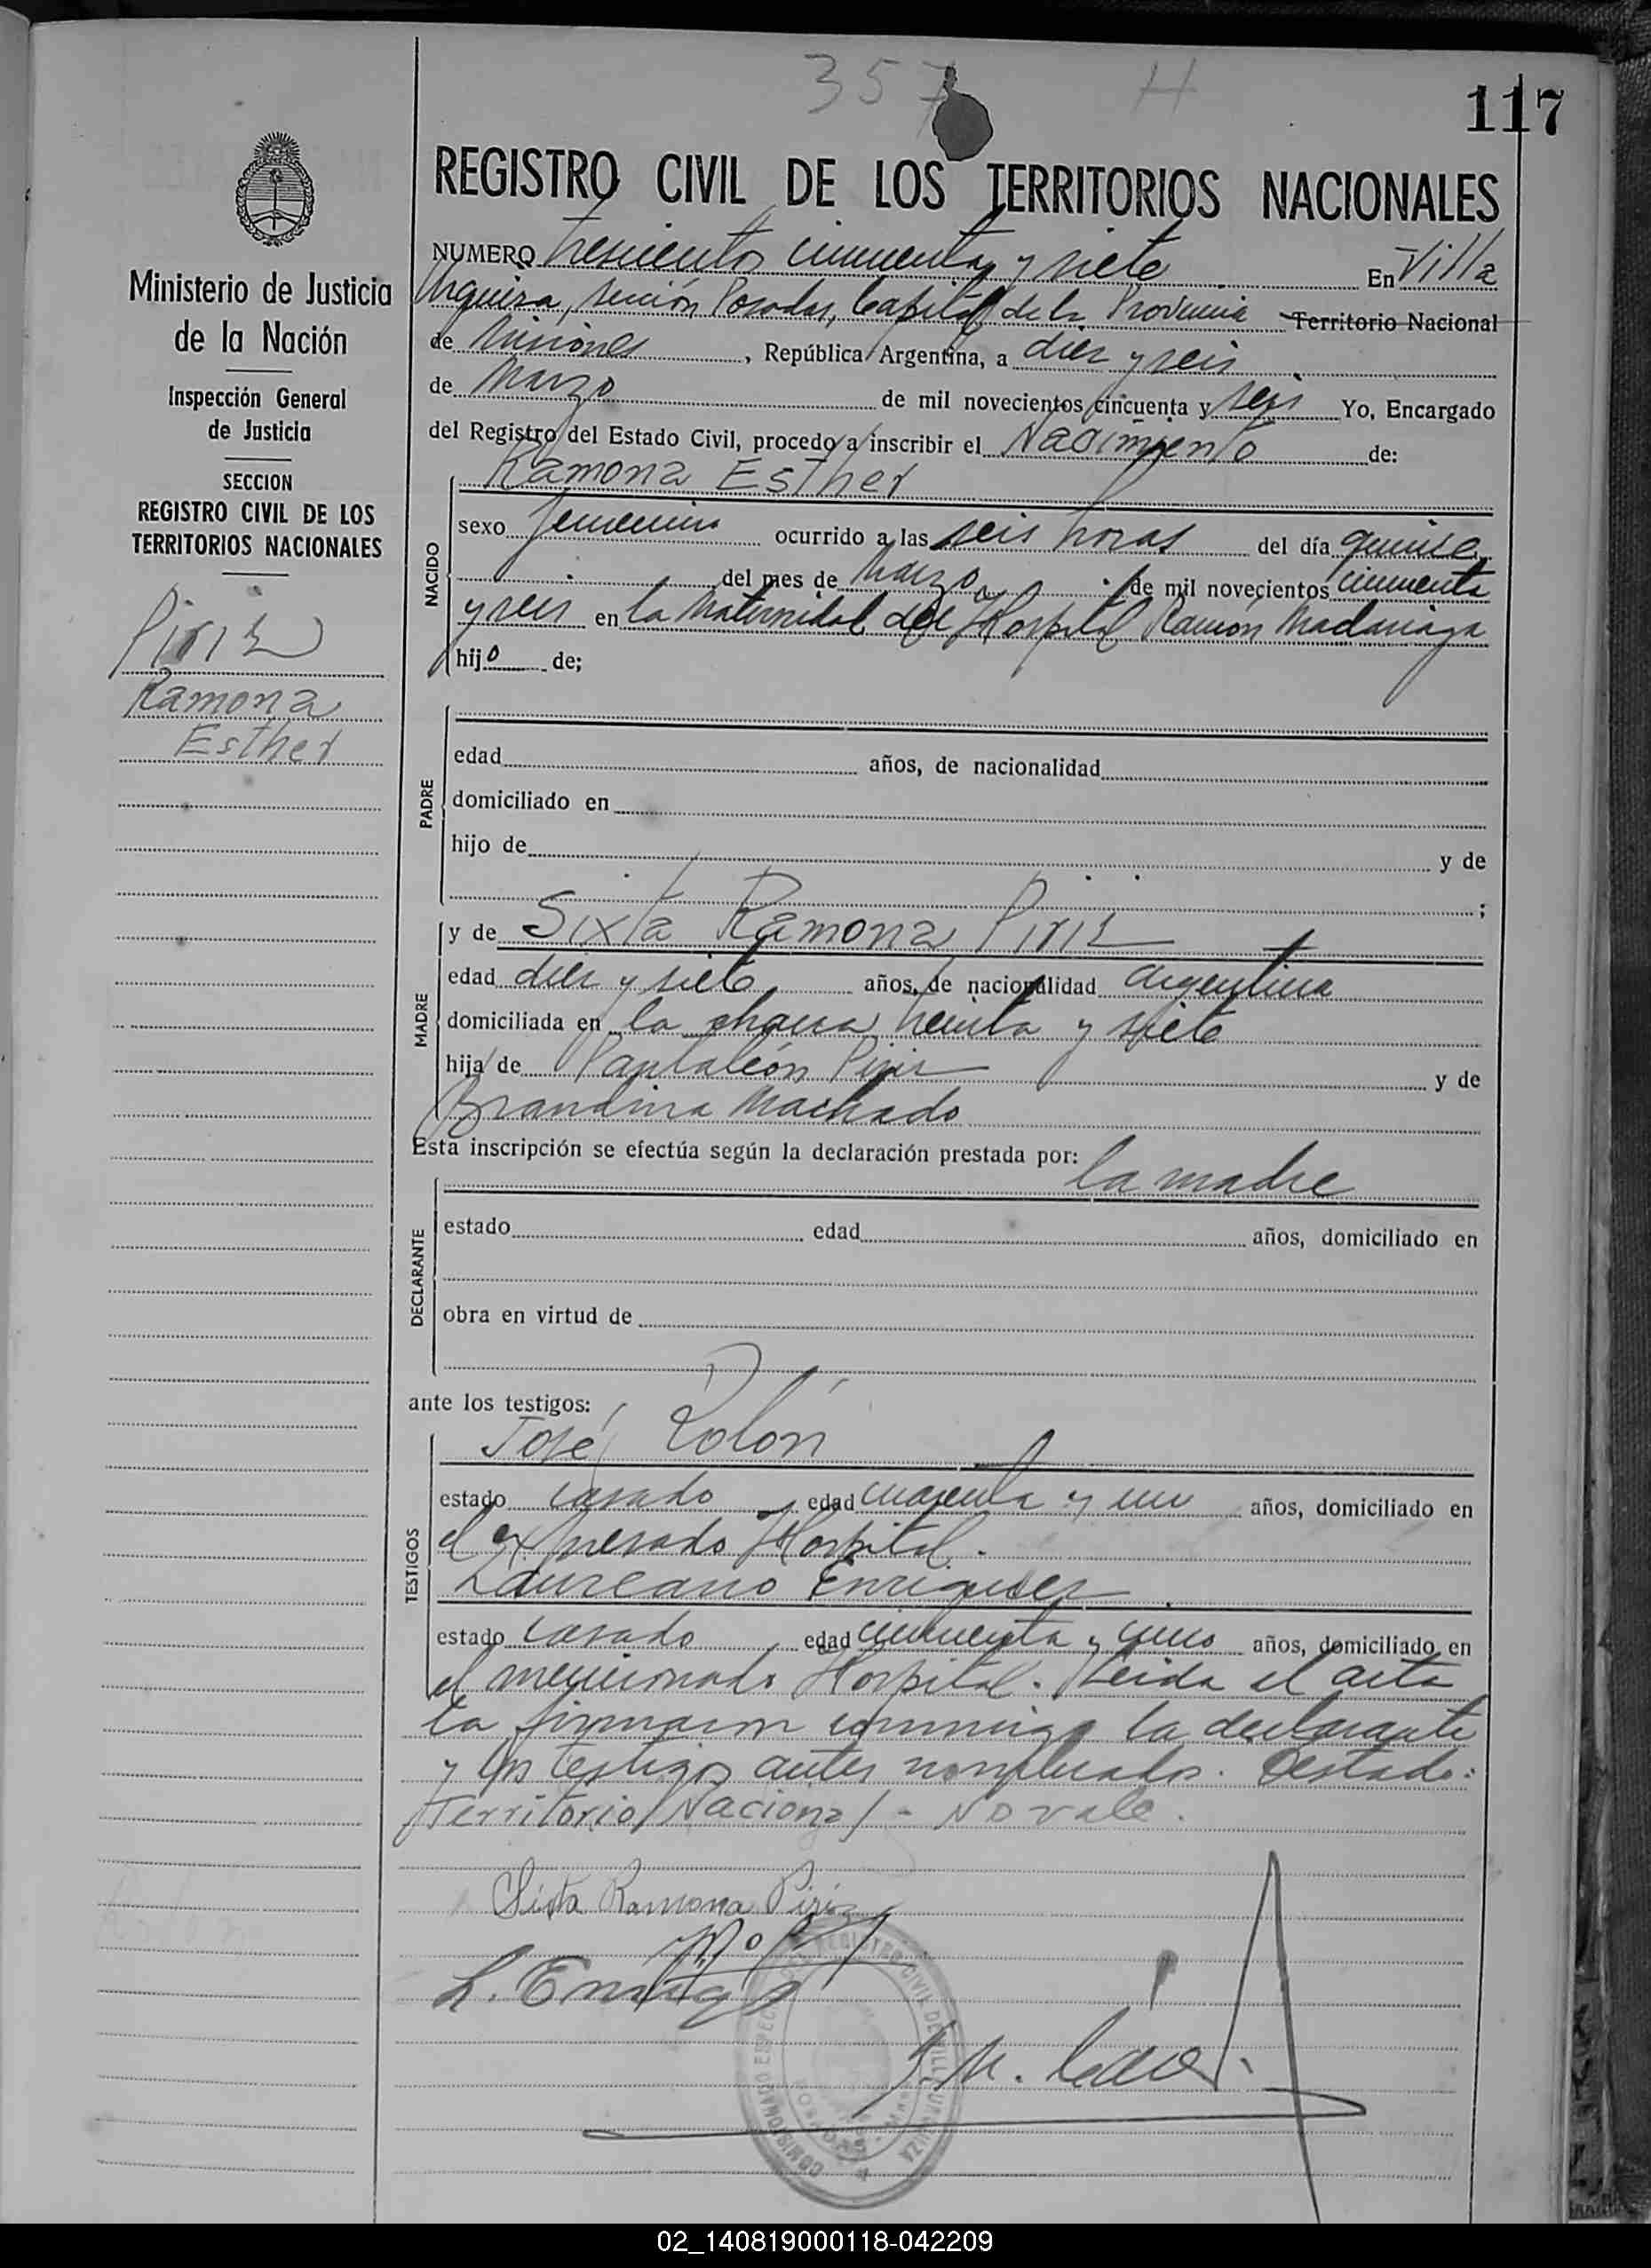 357 H
117
REGISTRO CIVIL DE LOS TERRITORIOS NACIONALES
Ministerio de Justicia
de la Nación
Inspección General
de Justicia
SECCION
REGISTRO CIVIL DE LOS
TERRITORIOS NACIONALES
Piriz
Ramona
Esther
NUMERO trescientos cincuenta y siete En Villa
Urquiza, sección Posadas, Capital de la Provincia Territorio Nacional
de Misiones, República Argentina, a diez y seis
de Marzo de mil novecientos cincuenta y seis Yo, Encargado
del Registro del Estado Civil, procedo a inscribir el Nacimiento de:
Ramona Esther
NACIDO
sexo femenino ocurrido a las seis horas del día quince
del mes de Marzo de mil novecientos cincuenta
y seis en la Maternidad del Hospital Ramón Madariaga
hijo de;
PADRE
edad años, de nacionalidad
domiciliado en
hijo de y de
;
MADRE
y de Sixta Ramona Piriz
edad diez y siete años, de nacionalidad argentina
domiciliada en la chacra treinta y siete
hija de Pantaleón Piriz y de
Brandina Machado
Esta inscripción se efectúa según la declaración prestada por:
la madre
DECLARANTE
estado edad años, domiciliado en
obra en virtud de
ante los testigos:
TESTIGOS
José Rolón
estado casado edad cuarenta y un años, domiciliado en
el expresado Hospital.
Laureano Enriquez
estado casado edad cincuenta y cinco años, domiciliado en
el mencionado Hospital. Leida el acta
la firmaron conmigo la declarante
y los testigos antes nombrados. Testado:
Territorio Nacional - No vale.
Sixta Ramona Piriz
02_140819000118-042209